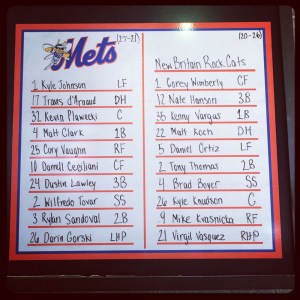 (27-21)
Mets
1 Kyle Johnson LF
17 Travis d'Arnaud DH
32 Kevin Plawecki C
4 Matt Clark 1B
25 Cory Vaughn RF
10 Darrell Ceciliani CF
24 Dustin Lawley 3B
2 Wilfredo Tovar SS
3 Rylan Sandoval 2B
26 Darin Gorski LHP
(20-26)
New Britain Rock Cats
1 Corey Wimberly CF
12 Nate Hanson 3B
35 Kenny Vargas 1B
22 Matt Koch DH
5 Daniel Ortiz LF
2 Tony Thomas 2B
4 Brad Boyer SS
26 Kyle Knudson C
9 Mike Kvasnicka RF
21 Virgil Vasquez RHP